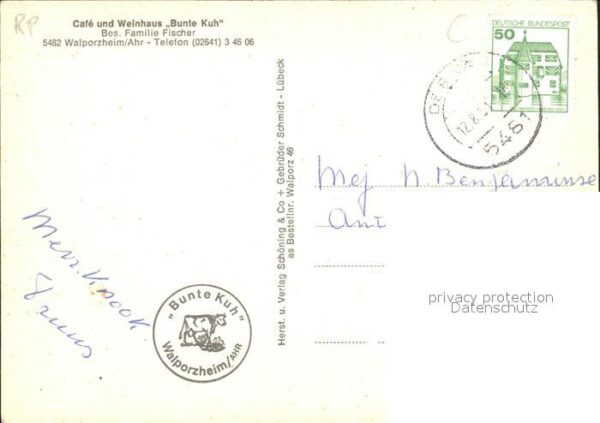 RP
Café und Weinhaus „Bunte Kuh"
Bes. Familie Fischer
5482 Walporzheim/Ahr - Telefon (02641) 3 46 06
DEUTSCHE BUNDESPOST
50
12.8.81
5481
Herst. u. Verlag Schöning & Co + Gebrüder Schmidt - Lübeck
as Bestellnr. Walporz 46
Mej
„Bunte Kuh"
Walporzheim/AHR
privacy protection
Datenschutz